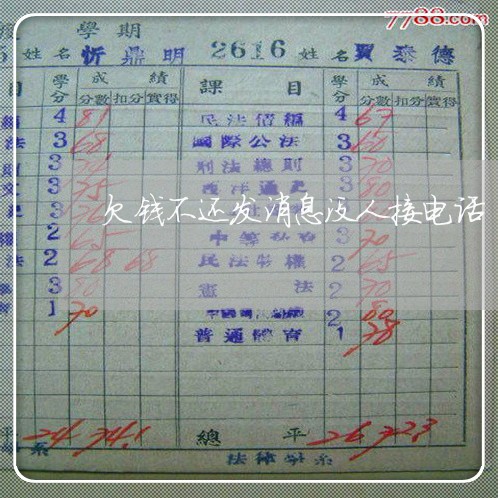 7788.com
學期
姓名 忻鼎明 2616 姓名 賈泰德
目 學分 成績 分數 扣分 實得 課目 學分 成績 分數 扣分 實得
4 81 民法債編 4 67
法 3 68 國際公法 3 60
3 刑法總則 3 70
3 75 西洋通史 3 80
3
欠钱不还发消息没人接电话
2 65 3 70
法 2 68 68 民法物權 2 65
3 80 憲法 2 70
1 70 2 80
普通體育 1 78
平 24 74.1 總平 26 72.3
系 法律學系